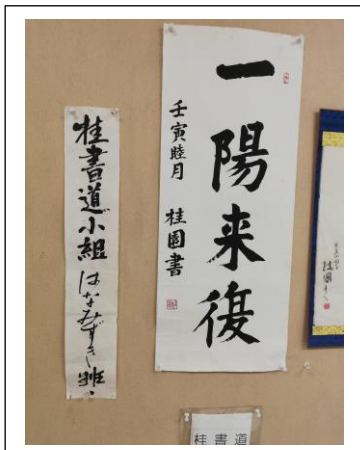 一陽来復
壬寅睦月 桂園書
桂書道小組はなみずき班
桂書道